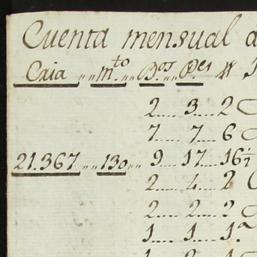 Cuenta mensual d
Cria " " m.to " " D.os " " P.es #
2 .... 3 .... 2
7 .... 7 .... 6
21.367 " " 130 " " 9 .. 17 .. 16½
2 .... 4 .. 2
2 .... 2 .. 2
1 .... 1 .. 1.a